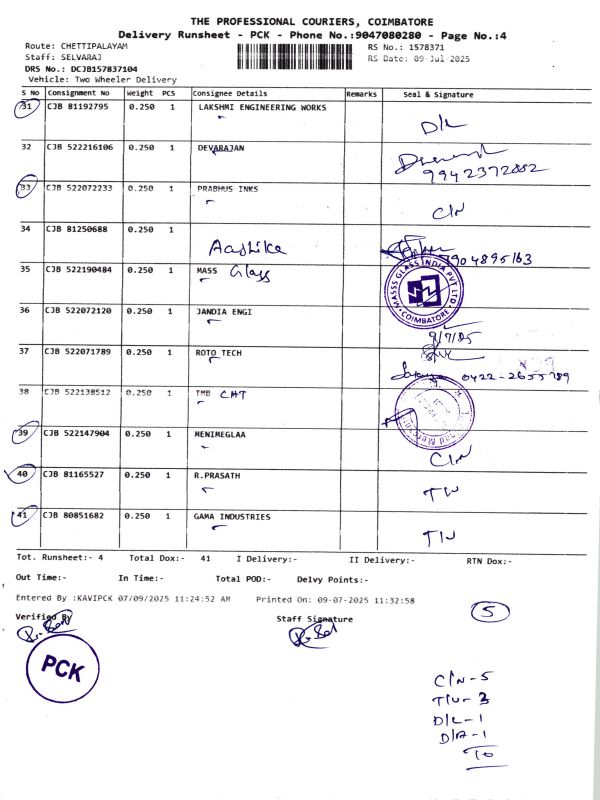 THE PROFESSIONAL COURIERS, COIMBATORE
Delivery Runsheet - PCK - Phone No.:9047080280 - Page No.:4
Route: CHETTIPALAYAM RS No.: 1578371
Staff: SELVARAJ RS Date: 09-Jul-2025
DRS No.: DCJB157837104
Vehicle: Two Wheeler Delivery
S No Consignment No Weight PCS Consignee Details Remarks Seal & Signature
31 CJB 81192795 0.250 1 LAKSHMI ENGINEERING WORKS D/L
32 CJB 522216106 0.250 1 DEVARAJAN
9942372882
33 CJB 522072233 0.250 1 PRABHUS INKS C/N
34 CJB 81250688 0.250 1 Aashika
9904895163
35 CJB 522190484 0.250 1 MASS Glass
MASSS GLASS INDIA PVT LTD
COIMBATORE
36 CJB 522072120 0.250 1 JANDIA ENGI
9/7/25
37 CJB 522071789 0.250 1 ROTO TECH
0422-2655789
38 CJB 522138512 0.250 1 TMB CHT
39 CJB 522147904 0.250 1 MENIMEGLAA C/N
40 CJB 81165527 0.250 1 R.PRASATH T/U
41 CJB 80851682 0.250 1 GAMA INDUSTRIES T/U
Tot. Runsheet:- 4 Total Dox:- 41 I Delivery:- II Delivery:- RTN Dox:-
Out Time:- In Time:- Total POD:- Delvy Points:-
Entered By :KAVIPCK 07/09/2025 11:24:52 AM Printed On: 09-07-2025 11:32:58
5
Verified By Staff Signature
PCK
C/N-5
T/U-3
D/L-1
D/A-1
10